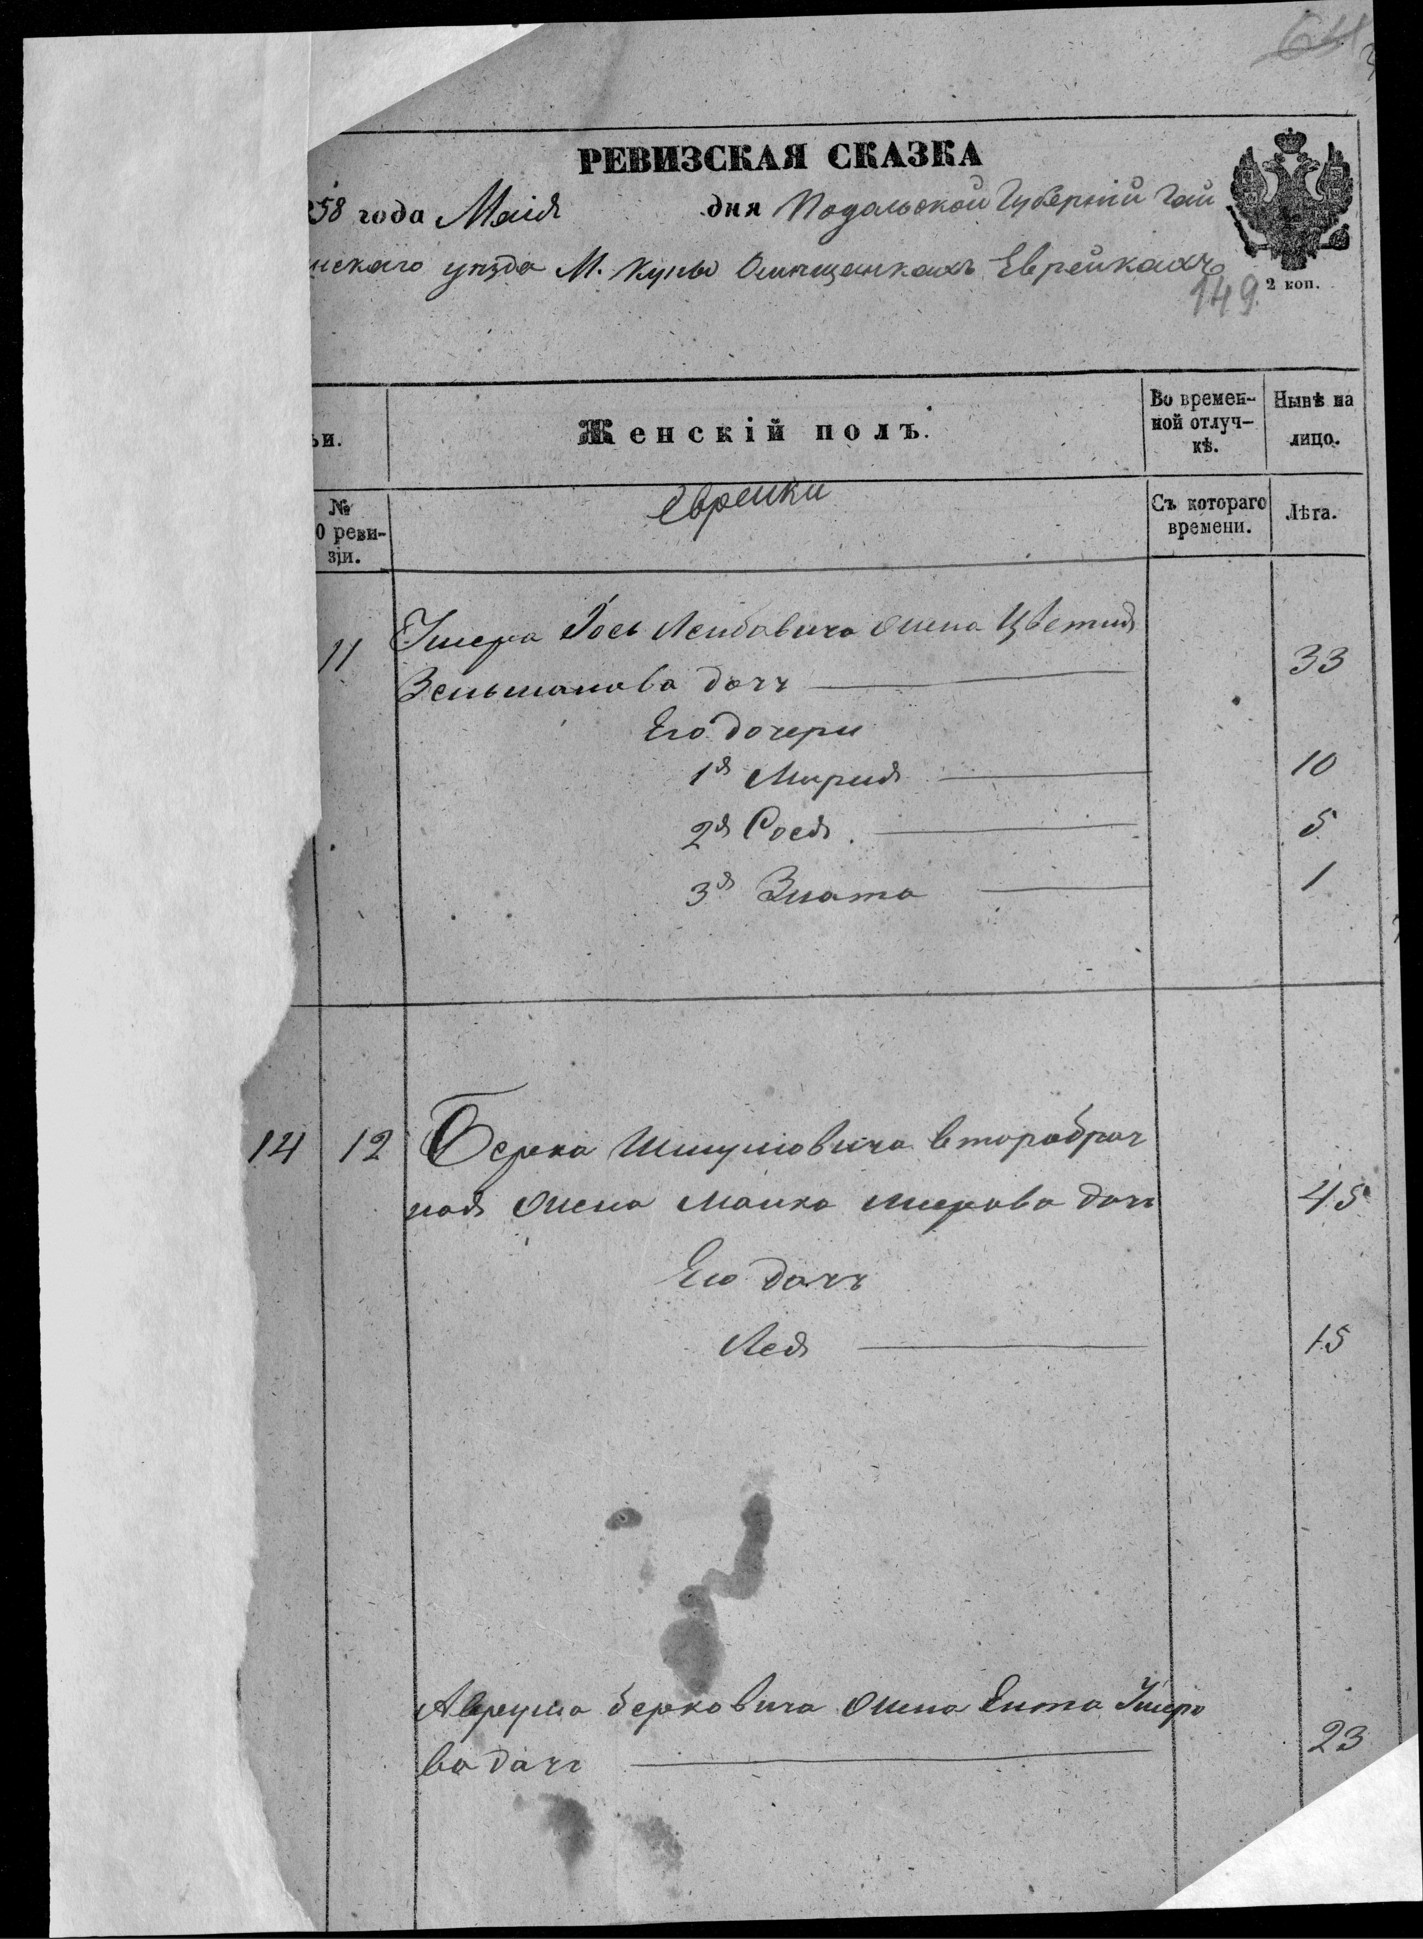 64
РЕВИЗСКАЯ СКАЗКА
58 года Маія дня Подольской Губерніи Гай
нскаго уѣзда М. Купы О мѣщанкахъ Еврейкахъ
149
2 коп.
ьи.
Женскій полъ.
Во времен-
ной отлуч-
кѣ.
Нынѣ на
лицо.
№
О реви-
зіи.
Еврейки
Съ котораго
времени.
Лѣта.
11 Умера Іось Лейбовича жена Цвѣтия
Зельманова дочь 33
Его дочери
1я Мирия 10
2я Сося 5
3я Злата 1
14 12 Берка Шмулёвича второбрач
ная жена Малка Мерова дочь 45
Его дочь
Лея 15
Аврума Берковича жена Ента Умеро
ва дочь 23